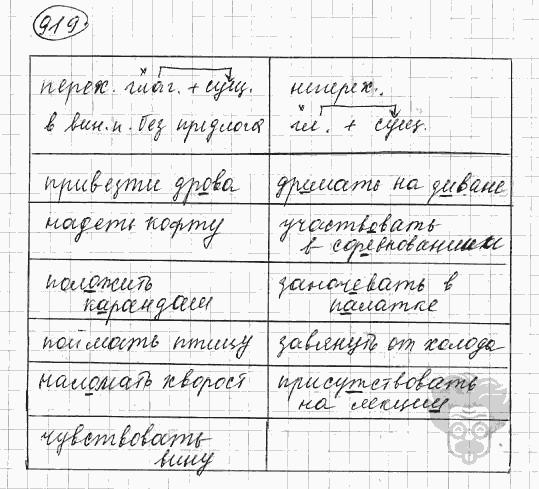 919.
перех. глаг. + сущ.
в вин.п. без предлога
неперех.
гл. + сущ.
привезти дрова
дремать на диване
надеть кофту
участвовать
в соревновании
положить
карандаш
заночевать в
палатке
поймать птицу
завянуть от холода
наломать хворост
присутствовать
на лекции
чувствовать
вину